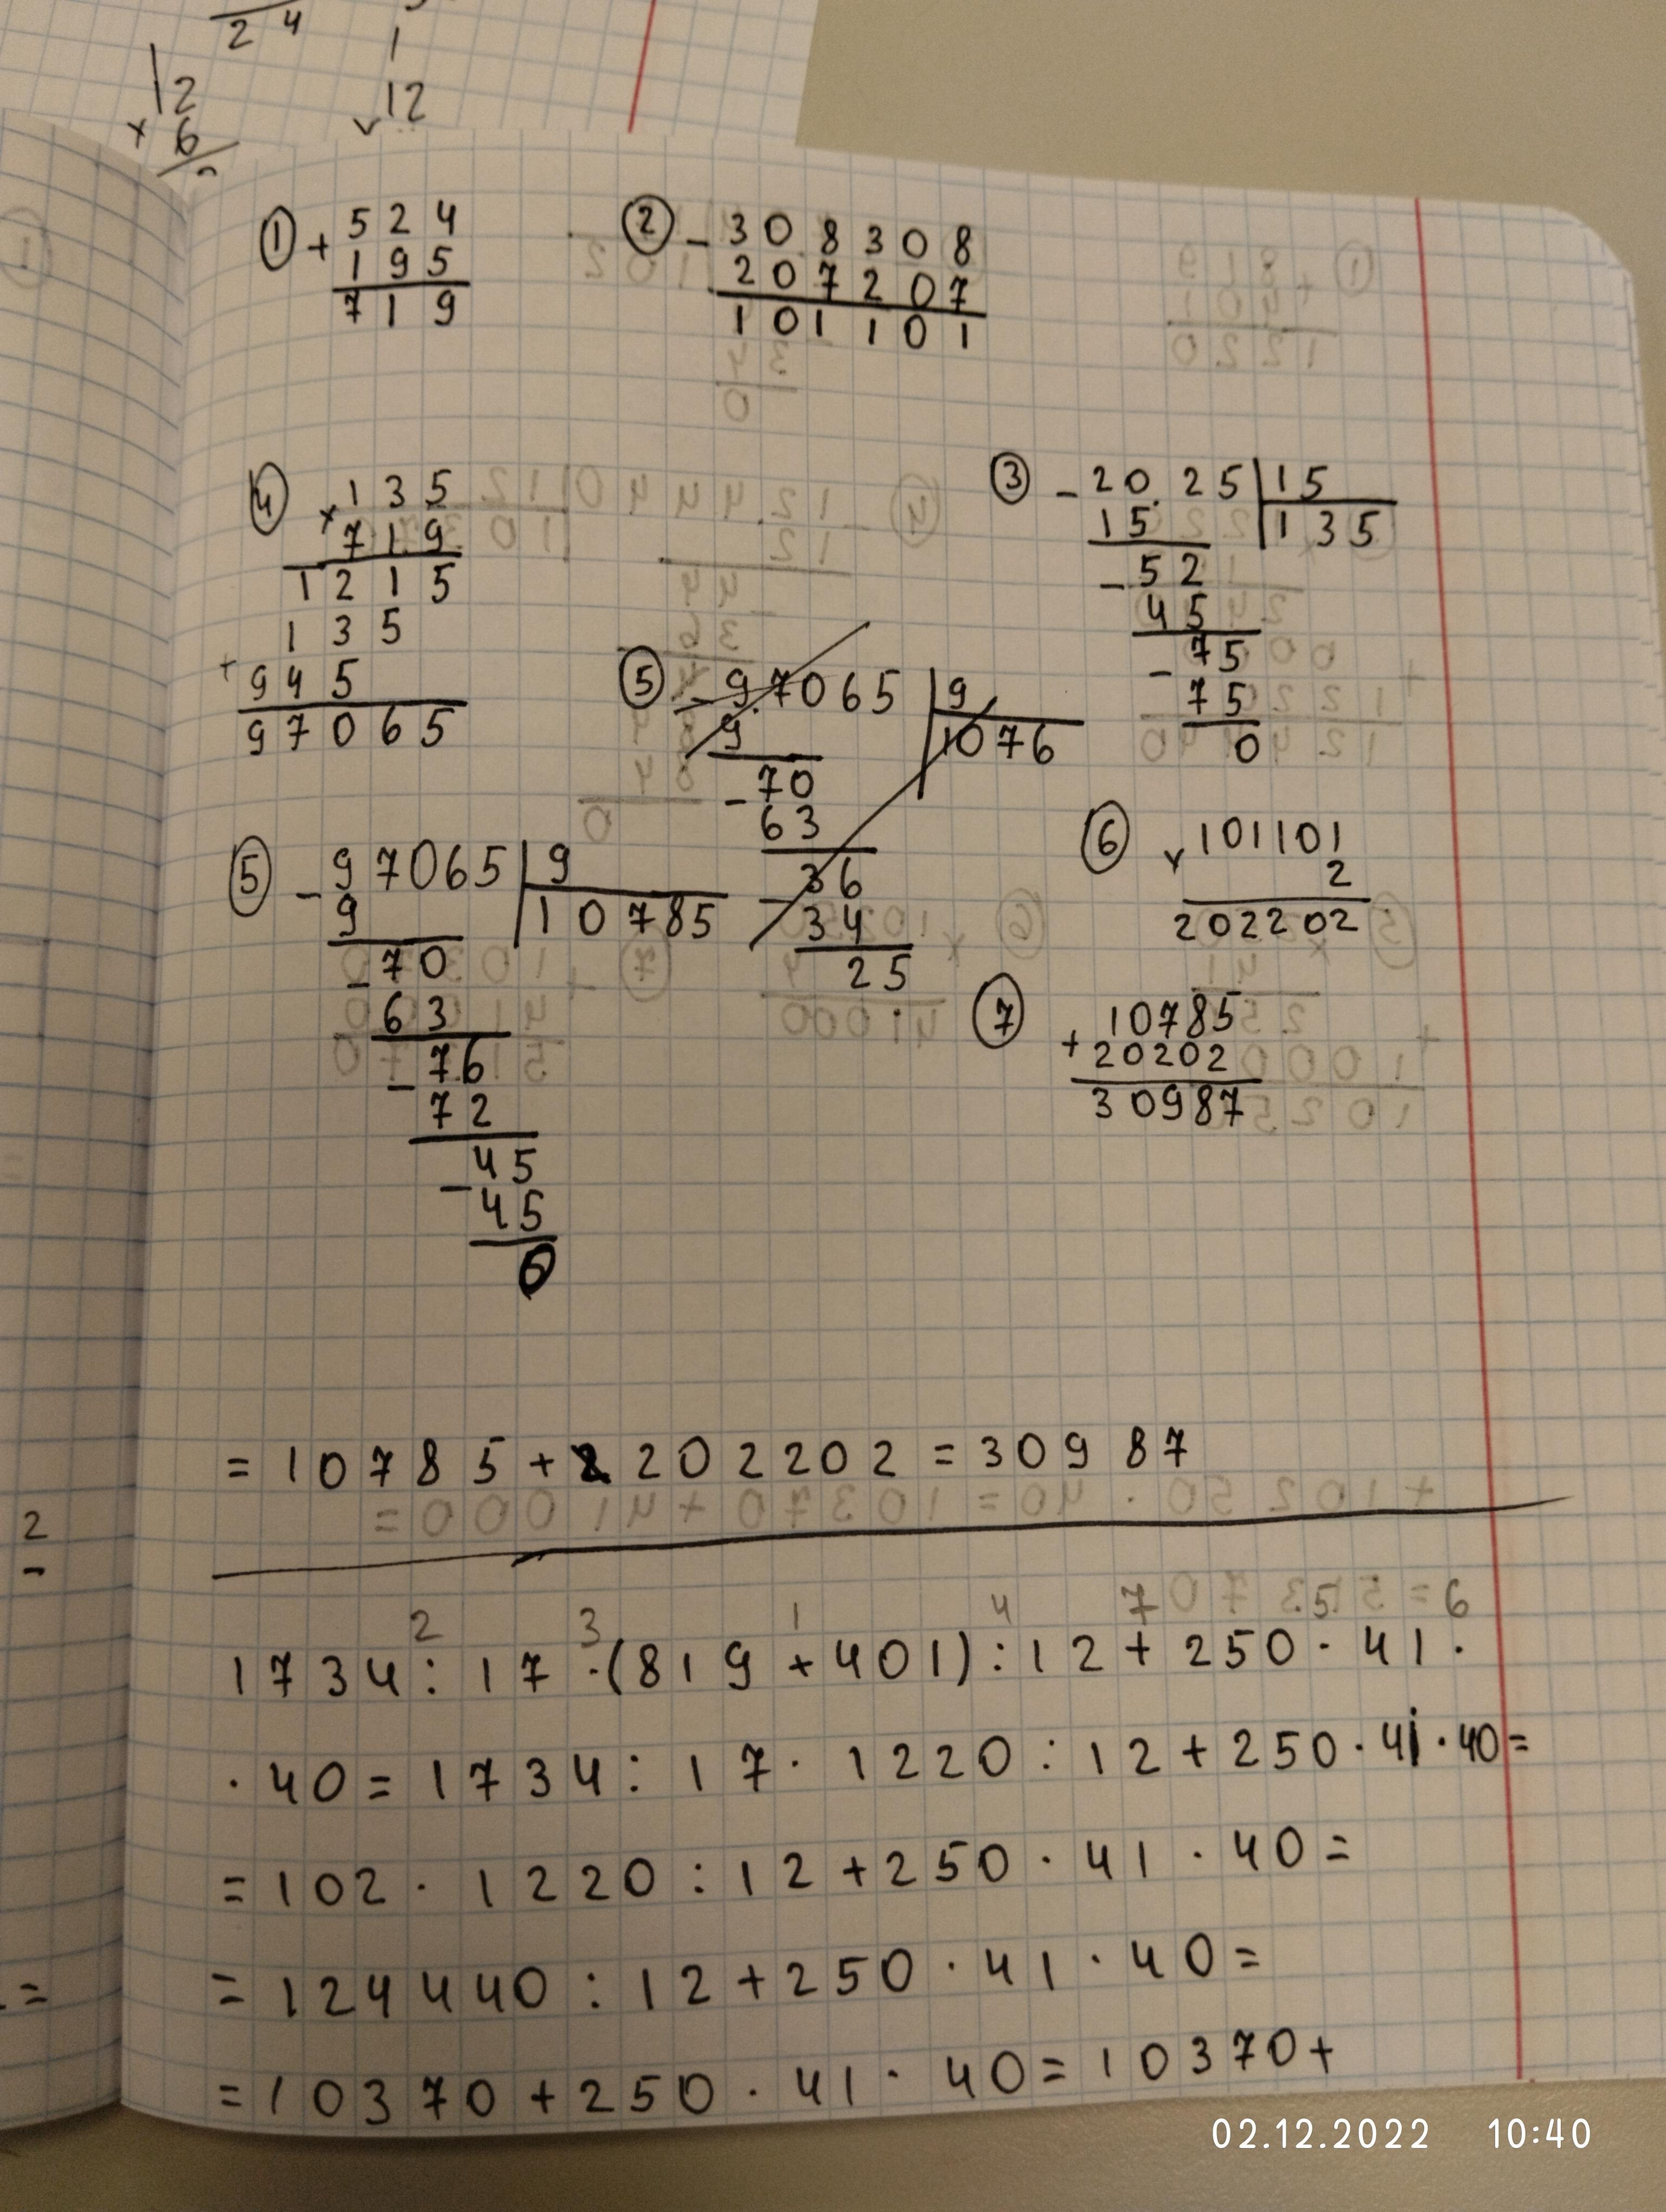 24
1
12
12
× 6
① + 524
195
719
② - 308308
207207
101101
④ × 135
719
1215
135
+ 945
97065
③ - 2025 | 15
15 | 135
- 52
45
- 75
75
0
⑤ - 97065 | 9
9 | 1076
- 70
63
- 36
34
25
⑤ - 97065 | 9
9 | 10785
- 70
63
- 76
72
- 45
45
0
⑥ × 101101
2
202202
⑦ + 10785
20202
30987
= 10785 + 2 202202 = 30987
2
2 3 1 4 7 5 6
1734 : 17 · (819 + 401) : 12 + 250 · 41 ·
· 40 = 1734 : 17 · 1220 : 12 + 250 · 41 · 40 =
= 102 · 1220 : 12 + 250 · 41 · 40 =
=
= 124440 : 12 + 250 · 41 · 40 =
= 10370 + 250 · 41 · 40 = 10370 +
02.12.2022 10:40